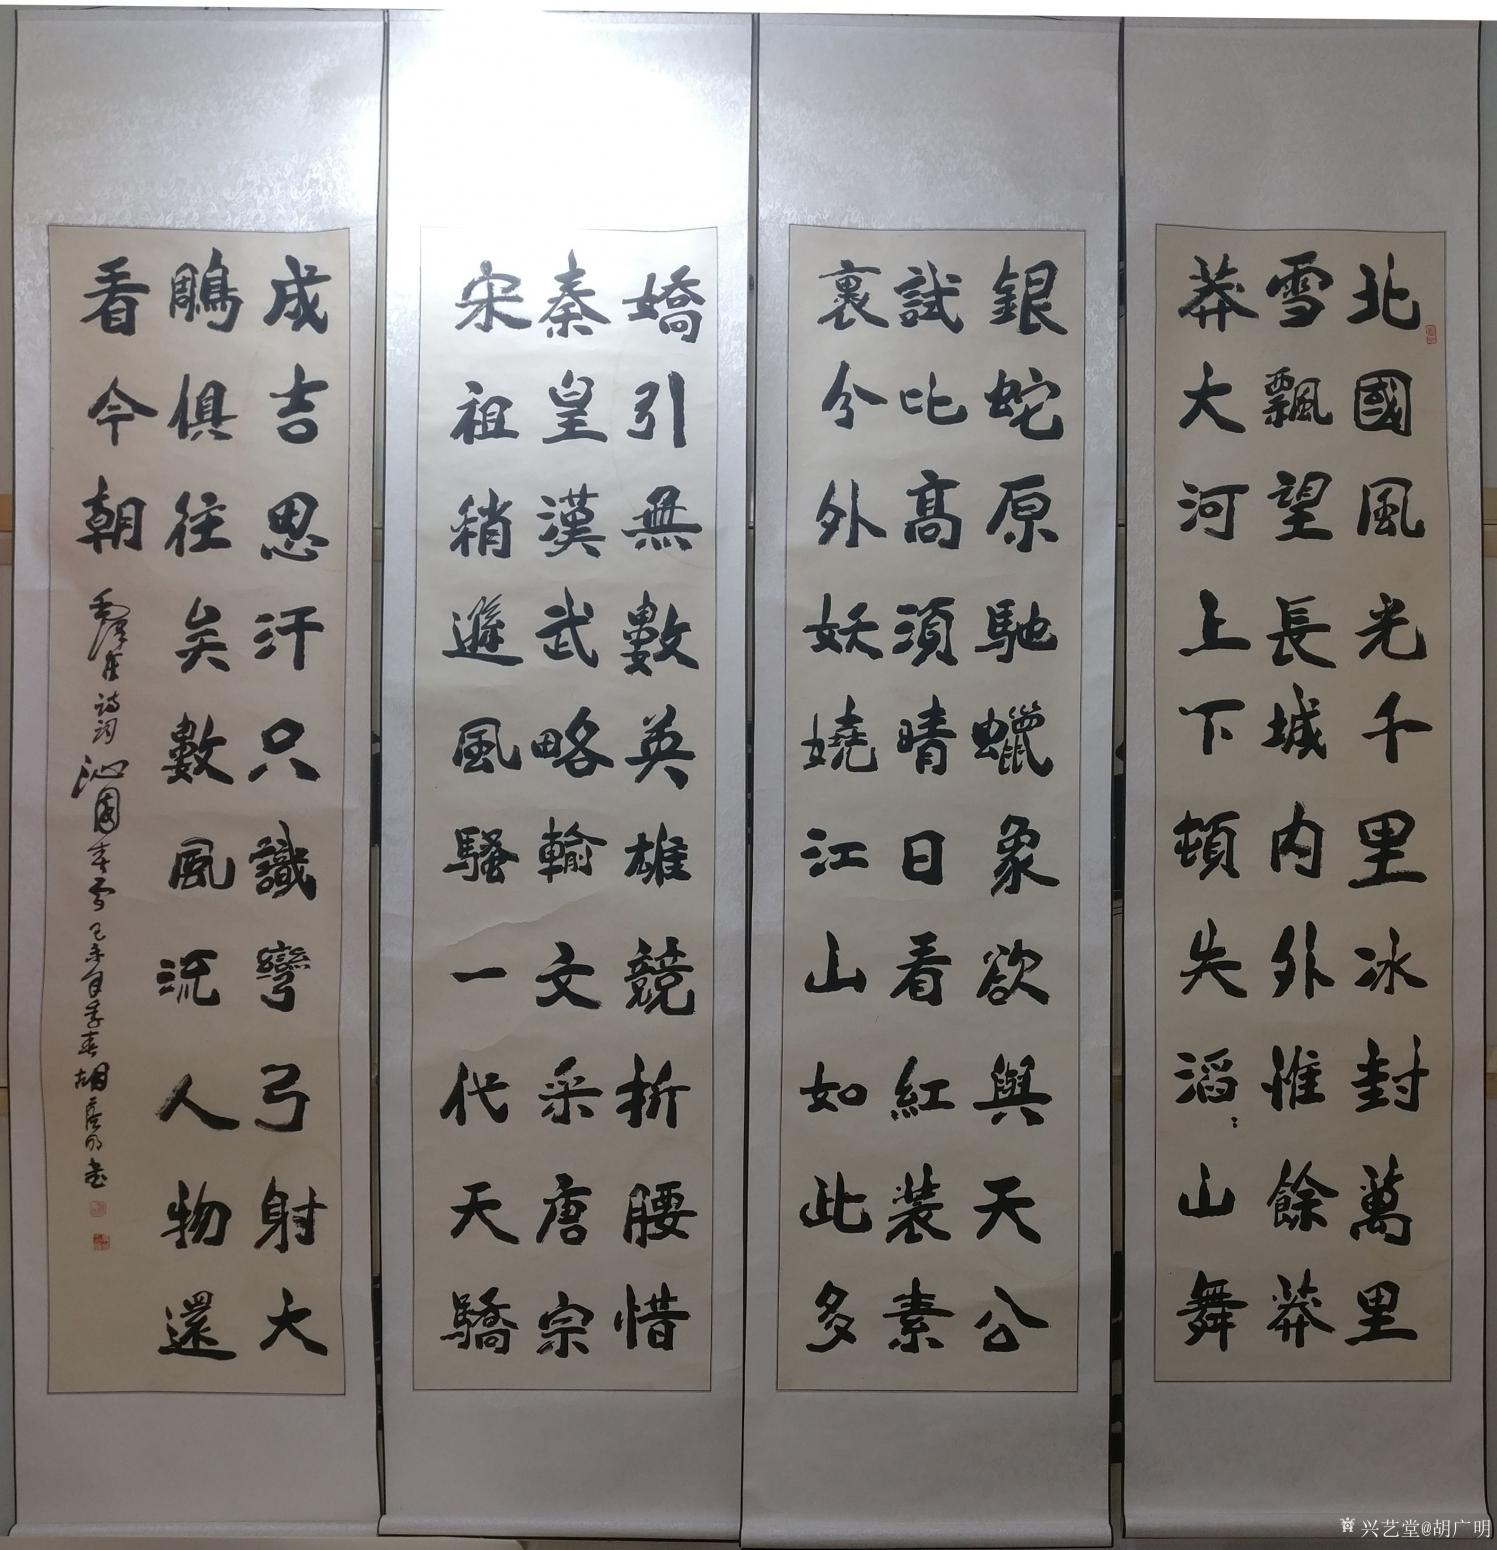 北國風光千里冰封萬里
雪飄望長城内外惟餘莽
莽大河上下頓失滔〻山舞
銀蛇原馳蠟象欲與天公
試比高須晴日看紅裝素
裹分外妖嬈江山如此多
嬌引無數英雄競折腰惜
秦皇漢武略輸文采唐宗
宋祖稍遜風騷一代天驕
成吉思汗只識彎弓射大
鵰俱往矣數風流人物還
看今朝
毛澤東诗词沁園春雪己未年季春胡广明书
兴艺堂@胡广明